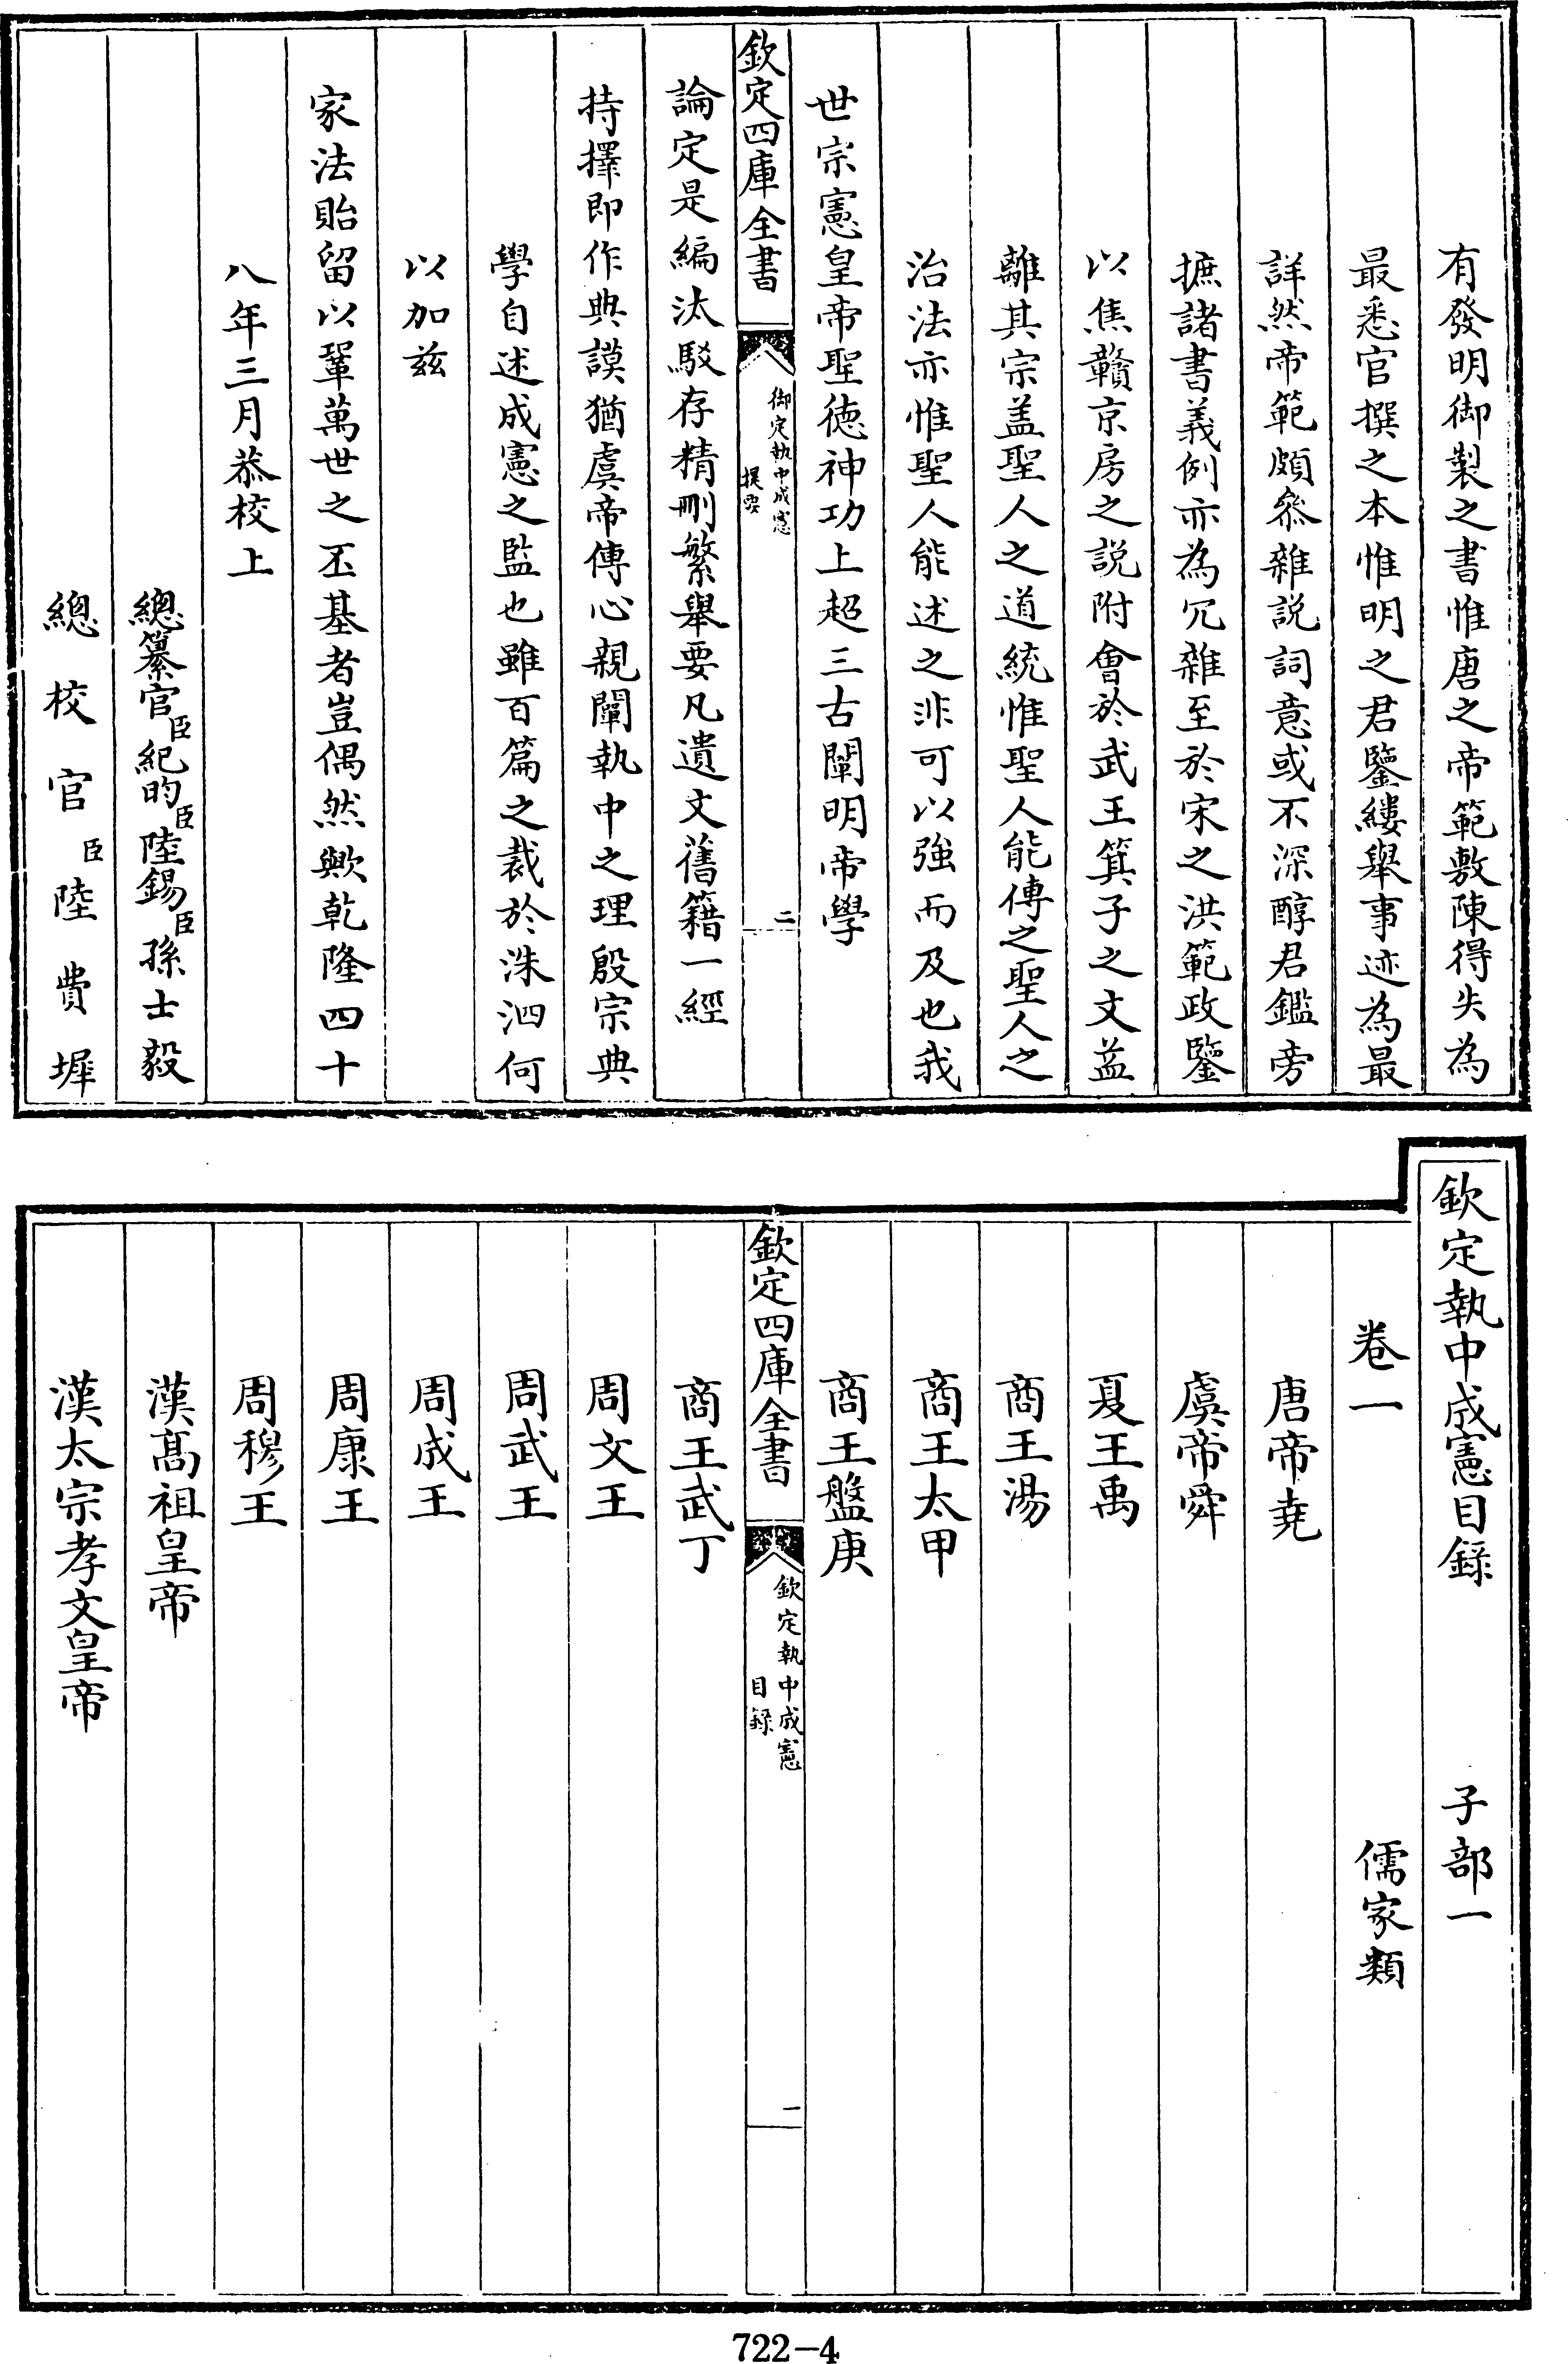 有發明御製之書惟唐之帝範敷陳得失為
最悉官撰之本惟明之君鑒縷舉事迹為最
詳然帝範頗叅雜説詞意或不深醇君鑑旁
摭諸書義例亦為冗雜至於宋之洪範政鑒
以焦贛京房之説附會於武王箕子之文益
離其宗盖聖人之道統惟聖人能傳之聖人之
治法亦惟聖人能述之非可以強而及也我
世宗憲皇帝聖徳神功上超三古闡明帝學
欽定四庫全書
御定執中成憲
提要
二
論定是編汰駁存精刪繁舉要凡遺文舊籍一經
持擇即作典謨猶虞帝傳心親闡執中之理殷宗典
學自述成憲之監也雖百篇之裁於洙泗何
以加兹
家法貽留以鞏萬世之丕基者豈偶然歟乾隆四十
八年三月恭校上
總纂官臣紀昀臣陸錫臣孫士毅
總校官臣陸費墀
欽定執中成憲目録 子部一
卷一 儒家類
唐帝堯
虞帝舜
夏王禹
商王湯
商王太甲
商王盤庚
欽定四庫全書
欽定執中成憲
目録
一
商王武丁
周文王
周武王
周成王
周康王
周穆王
漢髙祖皇帝
漢太宗孝文皇帝
722-4